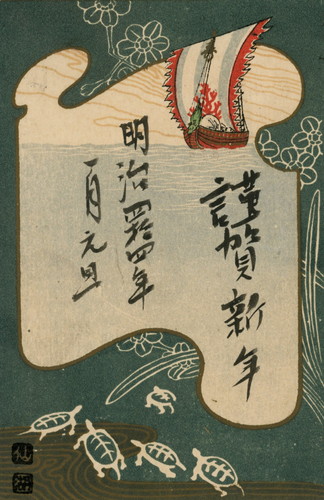 謹賀新年
明治四拾四年
一月元旦